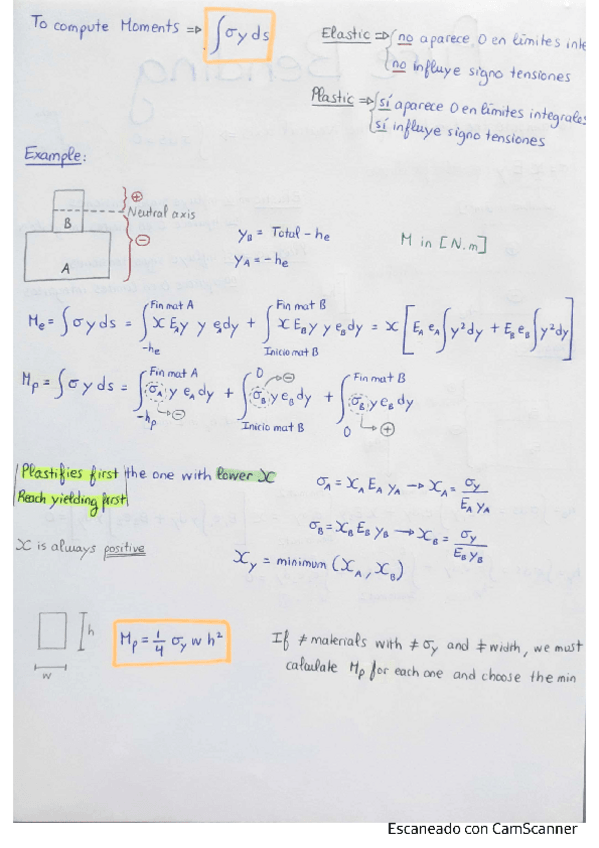 To compute Moments ⇒ ∫σyds
Elastic ⇒ no aparece 0 en límites inte
no influye signo tensiones
Plastic ⇒ sí aparece 0 en límites integrales
sí influye signo tensiones
Example:
⊕
Neutral axis
B
⊖
A
y_B = Total - h_e
y_A = - h_e
M in [N.m]
M_e = ∫σ y ds = ∫_{-h_e}^{Fin mat A} χ E_A y y e_A dy + ∫_{Inicio mat B}^{Fin mat B} χ E_B y y e_B dy = χ [E_A e_A ∫y² dy + E_B e_B ∫y² dy]
M_p = ∫σ y ds = ∫_{-h_p}^{Fin mat A} σ_A y e_A dy + ∫_{Inicio mat B}^{0} σ_B y e_B dy + ∫_{0}^{Fin mat B} σ_B y e_B dy
⊖
⊖
⊕
Plastifies first the one with lower χ
Reach yielding first
σ_A = χ_A E_A y_A → χ_A = σ_y / E_A y_A
σ_B = χ_B E_B y_B → χ_B = σ_y / E_B y_B
χ is always positive
χ_y = minimum (χ_A, χ_B)
h
w
M_p = 1/4 σ_y w h²
If ≠ materials with ≠ σ_y and ≠ width, we must
calculate M_p for each one and choose the min
Escaneado con CamScanner